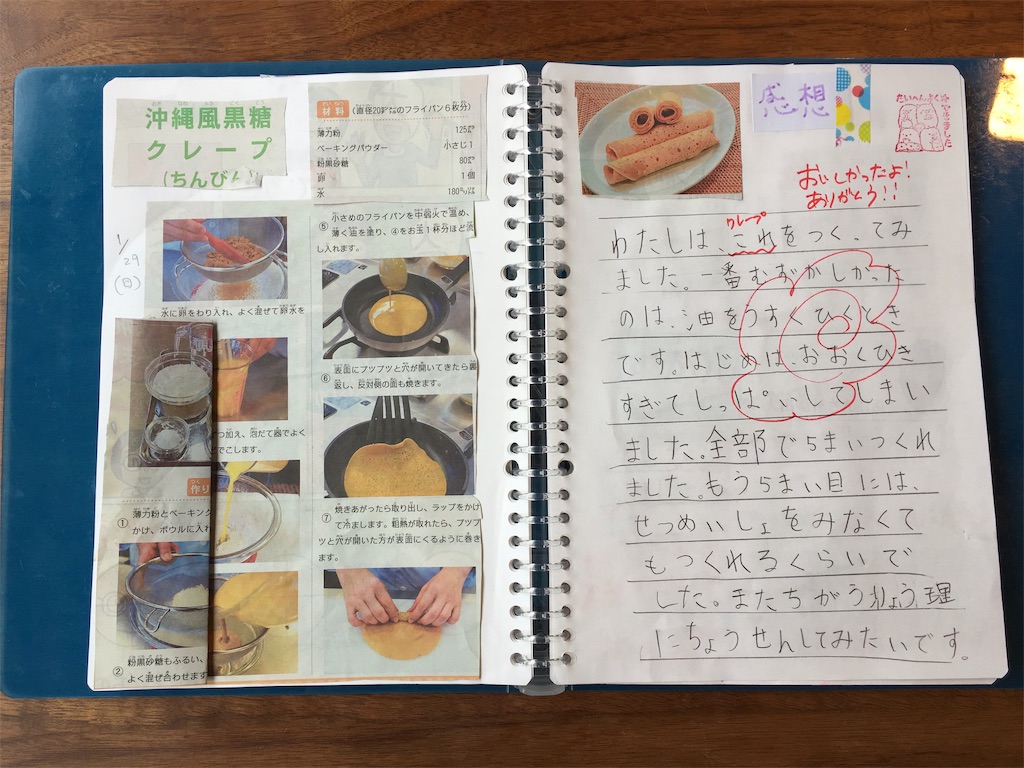 沖縄風黒糖
クレープ
(ちんびん)
1/29
(日)
材料 (直径20㌢のフライパン6枚分)
薄力粉 125㌘
ベーキングパウダー 小さじ1
粉黒砂糖 80㌘
卵 1個
水 180㍉㍑
水に卵をわり入れ、よく混ぜて卵水を
つ加え、泡だて器でよく
でこします。
作り
① 薄力粉とベーキング
かけ、ボウルに入れ
② 粉黒砂糖もふるい、
よく混ぜ合わせます
⑤ 小さめのフライパンを中弱火で温め、
薄く油を塗り、④をお玉1杯分ほど流
し入れます。
⑥ 表面にプツプツと穴が開いてきたら裏
返し、反対側の面も焼きます。
⑦ 焼きあがったら取り出し、ラップをかけ
て冷まします。粗熱が取れたら、プツプ
ツと穴が開いた方が表面にくるように巻き
ます。
感想
たいへんよくできました
おいしかったよ!
ありがとう!!
クレープ
わたしは、これをつくってみ
ました。一番むずかしかった
のは、油をうすくひくとき
です。はじめは、おおくひき
すぎてしっぱいしてしまい
ました。全部で5まいつくれ
ました。もう5まい目には、
せつめいしょをみなくて
もつくれるくらいで
した。またちがうりょう理
にちょうせんしてみたいです。